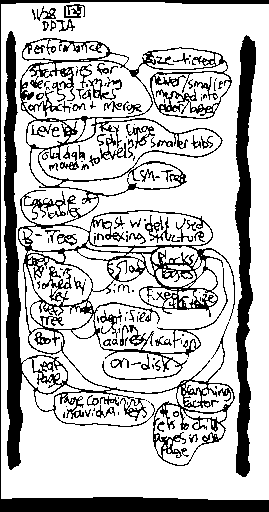 11/28 128
DDIA
Performance
Size-tiered
Strategies for
order and timing
of SSTables
compaction + merge
newer/smaller
merged into
older/larger
Leveled
Key range
split into smaller tabs
old data
moved into levels
LSM-Tree
Cascade of
SSTables
B-Trees
most widely used
indexing structure
Key
pairs
sorted by
key
SSTable
sim.
Blocks
Pages
Fixed size
Pages make
tree
identified
using
address/location
Root
on-disk
Leaf
page
Page containing
individual keys
Branching
factor
# of
refs to child
pages in one
page